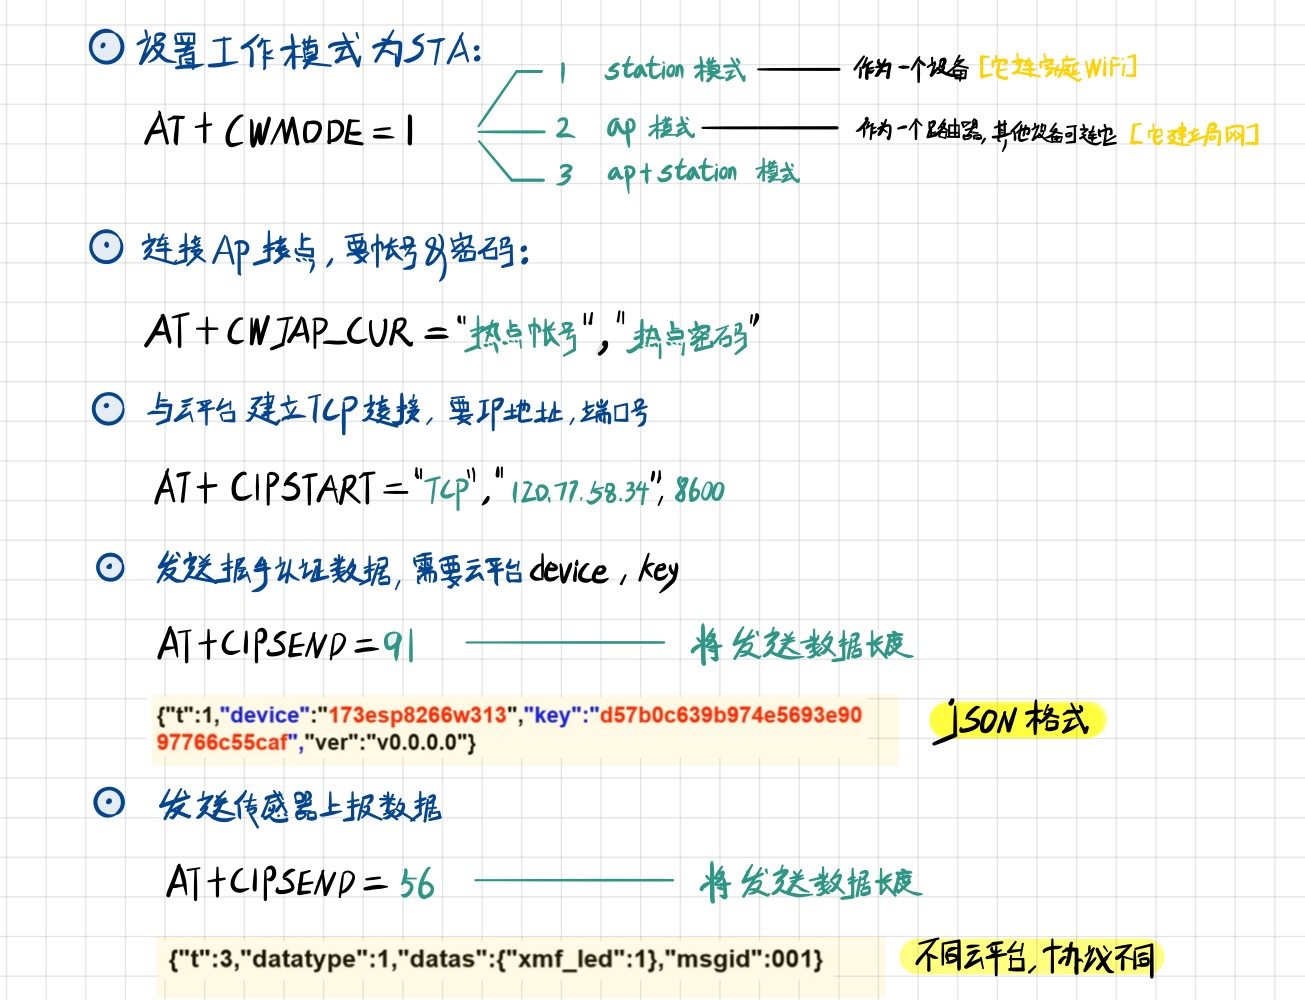 设置工作模式为STA:
1 station 模式 作为一个设备 [它连家庭WiFi]
AT+CWMODE=1
2 ap 模式 作为一个路由器,其他设备可连它 [它建立局网]
3 ap+station 模式
连接Ap接点,要帐号&密码:
AT+CWJAP_CUR="热点帐号","热点密码"
与云平台建立TCP连接,要IP地址,端口号
AT+CIPSTART="TCP","120.77.58.34",8600
发送握手认证数据,需要云平台device,key
AT+CIPSEND=91 将发送数据长度
{"t":1,"device":"173esp8266w313","key":"d57b0c639b974e5693e90
97766c55caf","ver":"v0.0.0.0"}
jSON格式
发送传感器上报数据
AT+CIPSEND=56 将发送数据长度
{"t":3,"datatype":1,"datas":{"xmf_led":1},"msgid":001}
不同云平台,协议不同